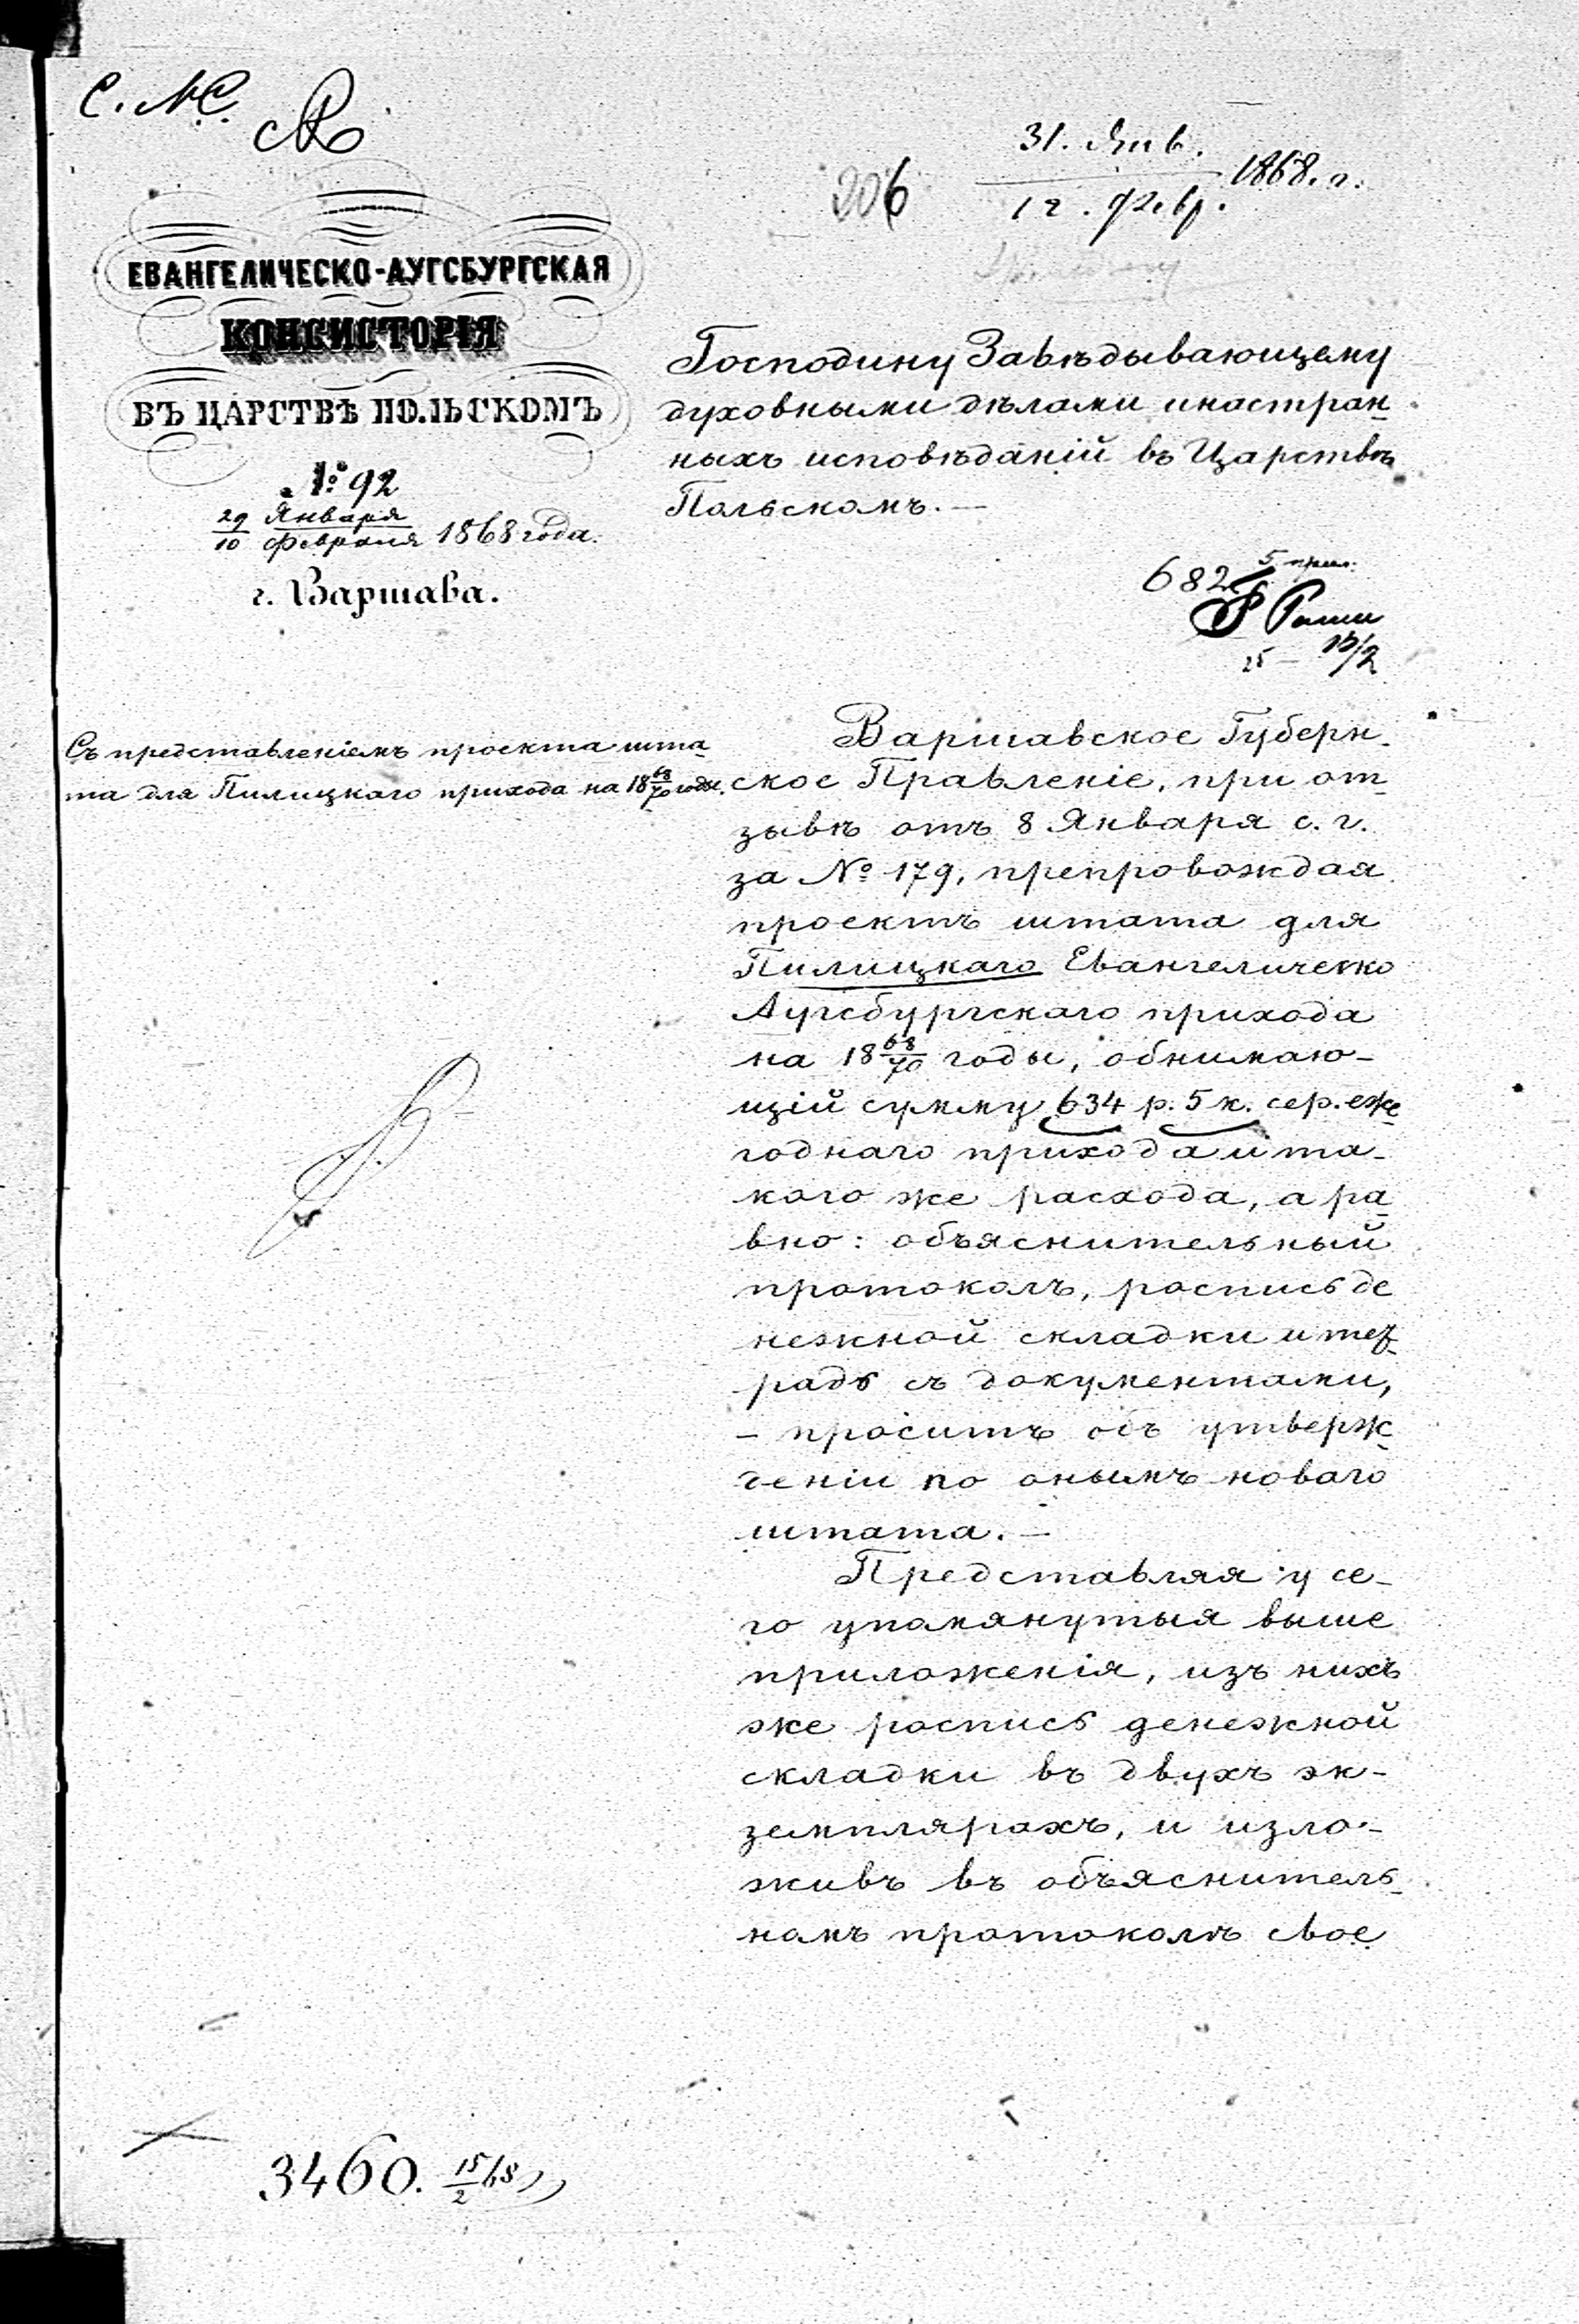 С. М. С.
206
31. Янв.
12. Февр. 1868. г.
ЕВАНГЕЛИЧЕСКО-АУГСБУРГСКАЯ
КОНСИСТОРІЯ
ВЪ ЦАРСТВѢ ПОЛЬСКОМЪ
№ 92
29 Января
10 Февраля 1868 года.
г. Варшава.
Господину Завѣдывающему
духовными дѣлами иностран-
ныхъ исповѣданій въ Царствѣ
Польскомъ. —
682
5 прил.
25 — 15/2
Съ представленіемъ проекта шта-
та для Пилицкаго прихода на 18 68/70 годы.
Варшавское Губерн-
ское Правленіе, при от-
зывѣ отъ 8 Января с. г.
за № 179, препровождая
проектъ штата для
Пилицкаго Евангелическо
Аугсбургскаго прихода
на 18 68/70 годы, обнимаю-
щій сумму 634 р. 5 к. сер. еже-
годнаго прихода и та-
кого же расхода, а ра-
вно: объяснительный
протоколъ, роспись де
нежной складки и тет-
радь съ документами,
— проситъ объ утверж-
деніи по онымъ новаго
штата. —
Представляя у се-
го упомянутыя выше
приложенія, изъ нихъ
же роспись денежной
складки въ двухъ эк-
земплярахъ, и изло-
живъ въ объяснитель-
номъ протоколѣ свое
3460. 15/2 68